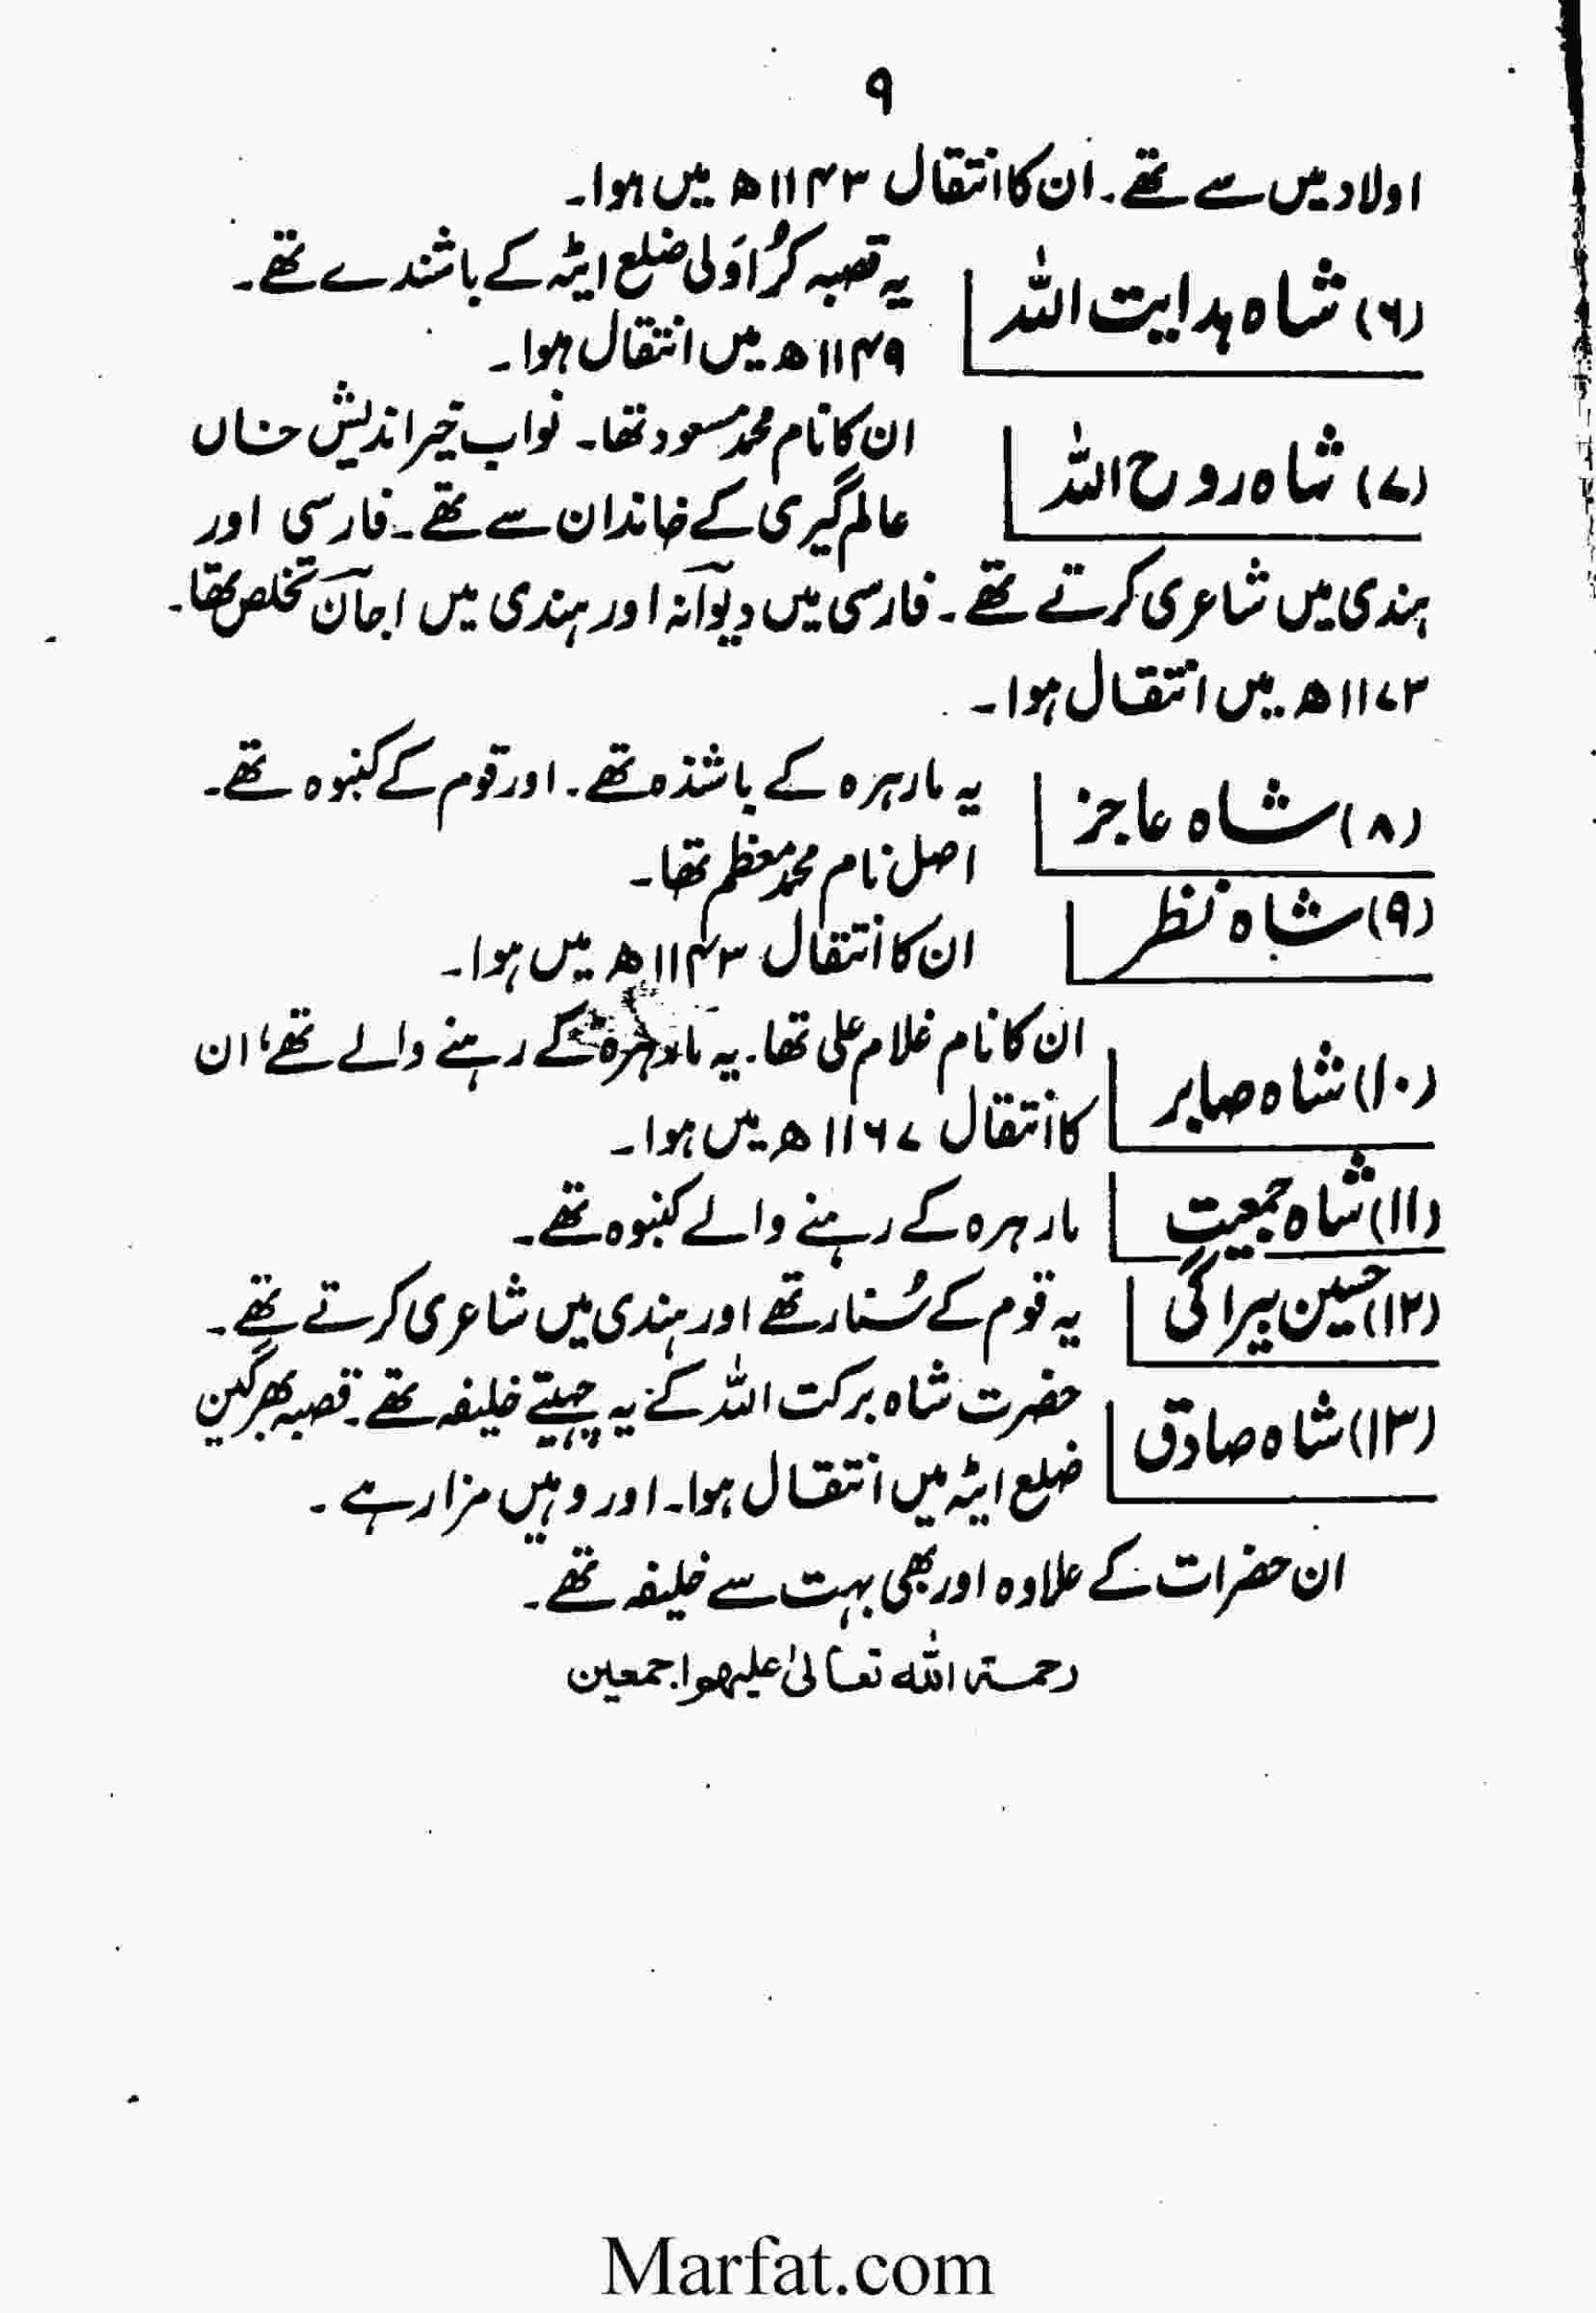 ۹
اولاد میں سے تھے۔ ان کا انتقال ۱۱۴۳ھ میں ہوا۔
(۶) شاہ ہدایت اللہ
یہ قصبہ کُراوَلی ضلع ایٹہ کے باشندے تھے۔
۱۱۴۹ھ میں انتقال ہوا۔
(۷) شاہ روح اللہ
ان کا نام محمد مسعود تھا۔ نواب خیر اندیش خاں
عالم گیری کے خاندان سے تھے۔ فارسی اور
ہندی میں شاعری کرتے تھے۔ فارسی میں دیوانہ اور ہندی میں اجان تخلص تھا۔
۱۱۷۳ھ میں انتقال ہوا۔
(۸) شاہ عاجز
یہ مارہرہ کے باشندہ تھے۔ اور قوم کے کنبوہ تھے۔
اصل نام محمد معظم تھا۔
(۹) شاہ نظر
ان کا انتقال ۱۱۴۳ھ میں ہوا۔
(۱۰) شاہ صابر
ان کا نام غلام علی تھا۔ یہ مارہرہ کے رہنے والے تھے، ان
کا انتقال ۱۱۶۷ھ میں ہوا۔
(۱۱) شاہ جمعیت
مارہرہ کے رہنے والے کنبوہ تھے۔
(۱۲) حسین بیراگی
یہ قوم کے سُنار تھے اور ہندی میں شاعری کرتے تھے۔
(۱۳) شاہ صادق
حضرت شاہ برکت اللہ کے یہ چہیتے خلیفہ تھے۔ قصبہ بھرگین
ضلع ایٹہ میں انتقال ہوا۔ اور وہیں مزار ہے۔
ان حضرات کے علاوہ اور بھی بہت سے خلیفہ تھے۔
رحمۃ اللہ تعالیٰ علیھم اجمعین
Marfat.com